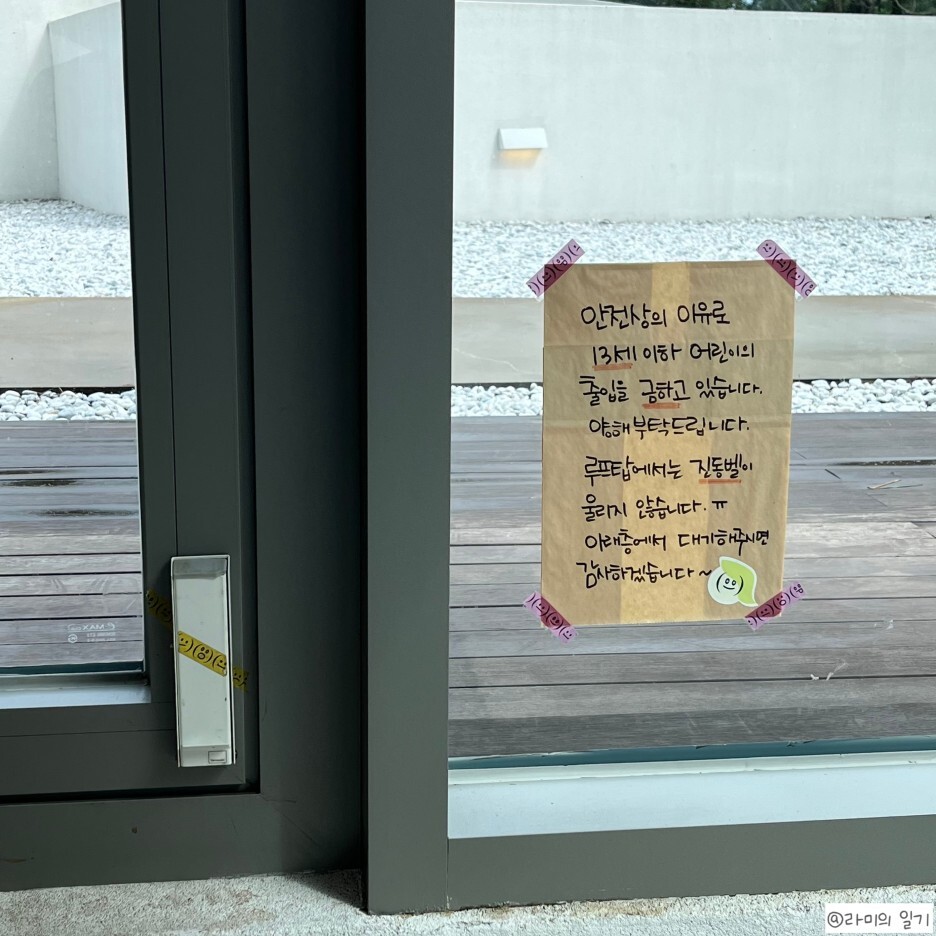 안전상의 이유로
13세 이하 어린이의
출입을 금하고 있습니다.
양해부탁드립니다.
루프탑에서는 진동벨이
울리지 않습니다. ㅠ
아래층에서 대기해주시면
감사하겠습니다~
@라미의 일기